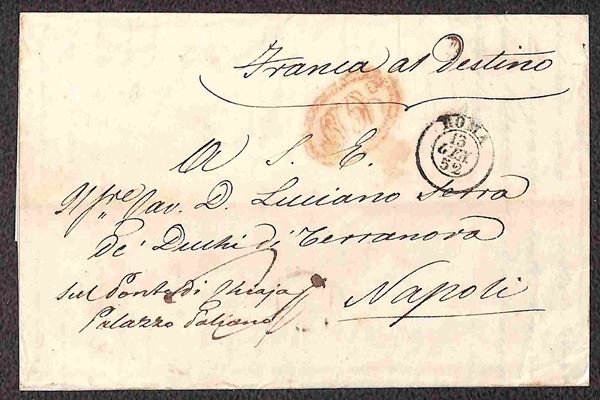 Franca al Destino
ROMA
13
GEN
52
A S. E.
Cav. D. Luciano Serra
de' Duchi di Terranova
sul Ponte di Chiaja
Palazzo
Napoli